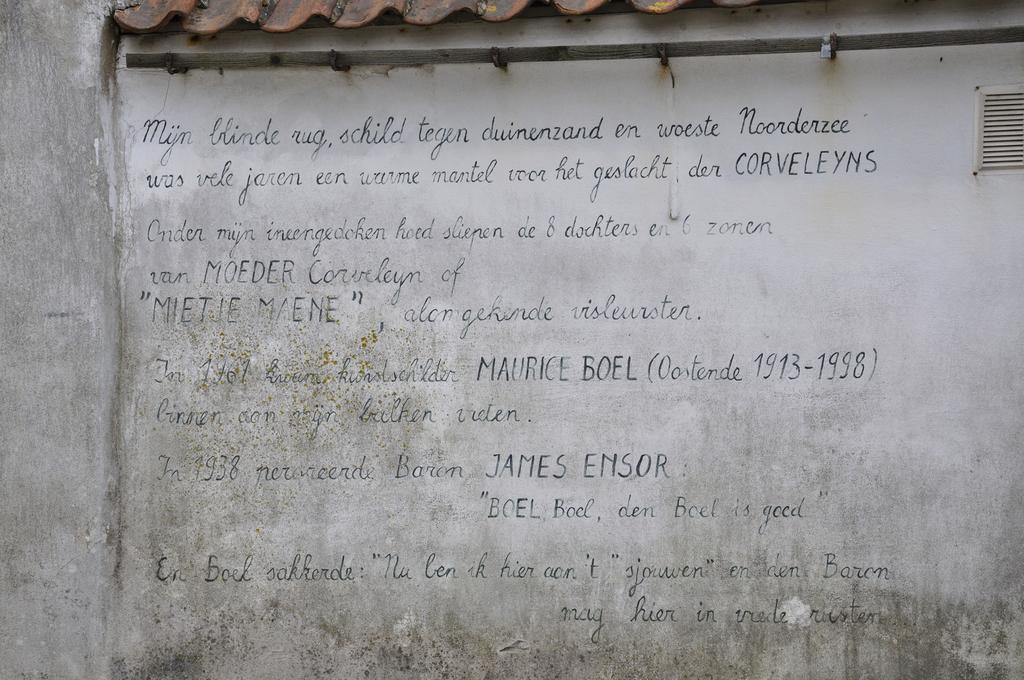 Mijn blinde rug, schild tegen duinenzand en woeste Noorderzee
was vele jaren een warme mantel voor het geslacht der CORVELEYNS
Onder mijn ineengedoken hoed sliepen de 8 dochters en 6 zonen
van MOEDER Corveleyn of
"MIETJE MAENE", alomgekende visleurster.
In 1961 kwam kunstschilder MAURICE BOEL (Oostende 1913-1998)
binnen aan mijn balken vreten.
In 1938 peroreerde Baron JAMES ENSOR:
"BOEL, Boel, den Boel is goed"
En Boel sakkerde: "Nu ben ik hier aan 't "sjouwen" en den Baron
mag hier in vrede rusten